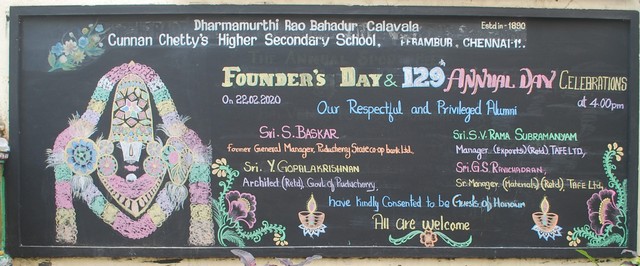 Dharmamurthi Rao Bahadur Calavala
Estd in-1890
Cunnan Chetty's Higher Secondary School,
PERAMBUR, CHENNAI-11.
FOUNDER'S DAY & 129th ANNUAL DAY CELEBRATIONS
On 22.02.2020
at 4.00pm
Our Respectful and Privileged Alumni
Sri. S. BASKAR
former General Manager, Puducherry State co-op bank Ltd.
Sri. Y. GOPALAKRISHNAN
Architect (Retd), Govt. of Puducherry,
Sri. S.V. RAMA SUBRAMANYAM
Manager (Exports) (Retd) TAFE LTD,
Sri. G.S. RAVICHADRAN,
Sr. Manager (Materials) (Retd) TAFE Ltd,
have kindly Consented to be Guests of Honour
All are welcome